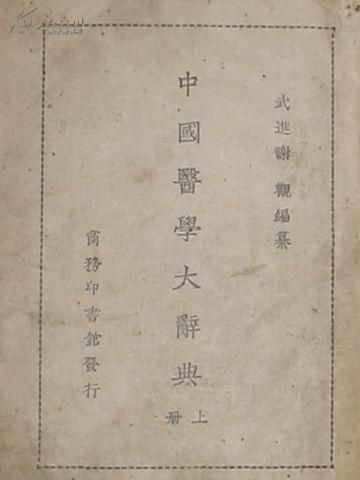 武進謝觀編纂
中國醫學大辭典
上册
商務印書館發行